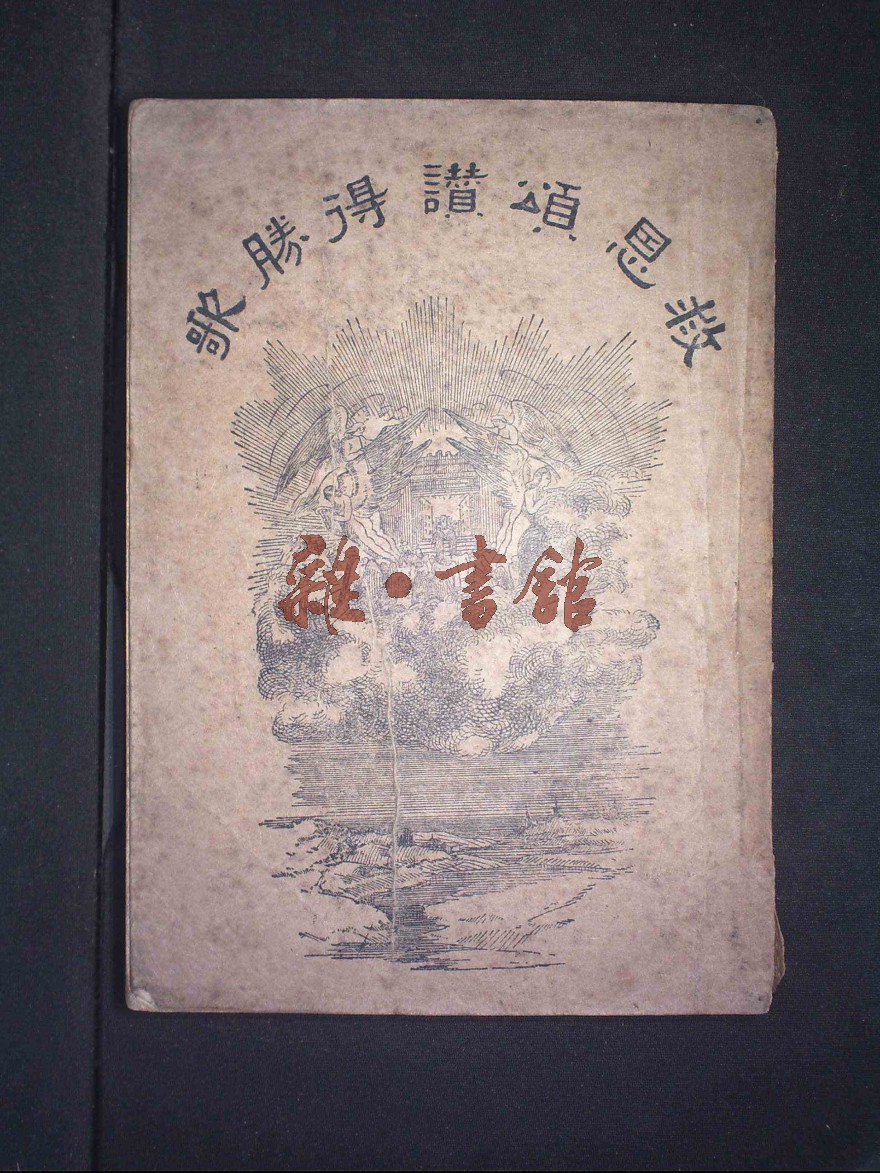 救恩頌讚得勝歌
雜·書館